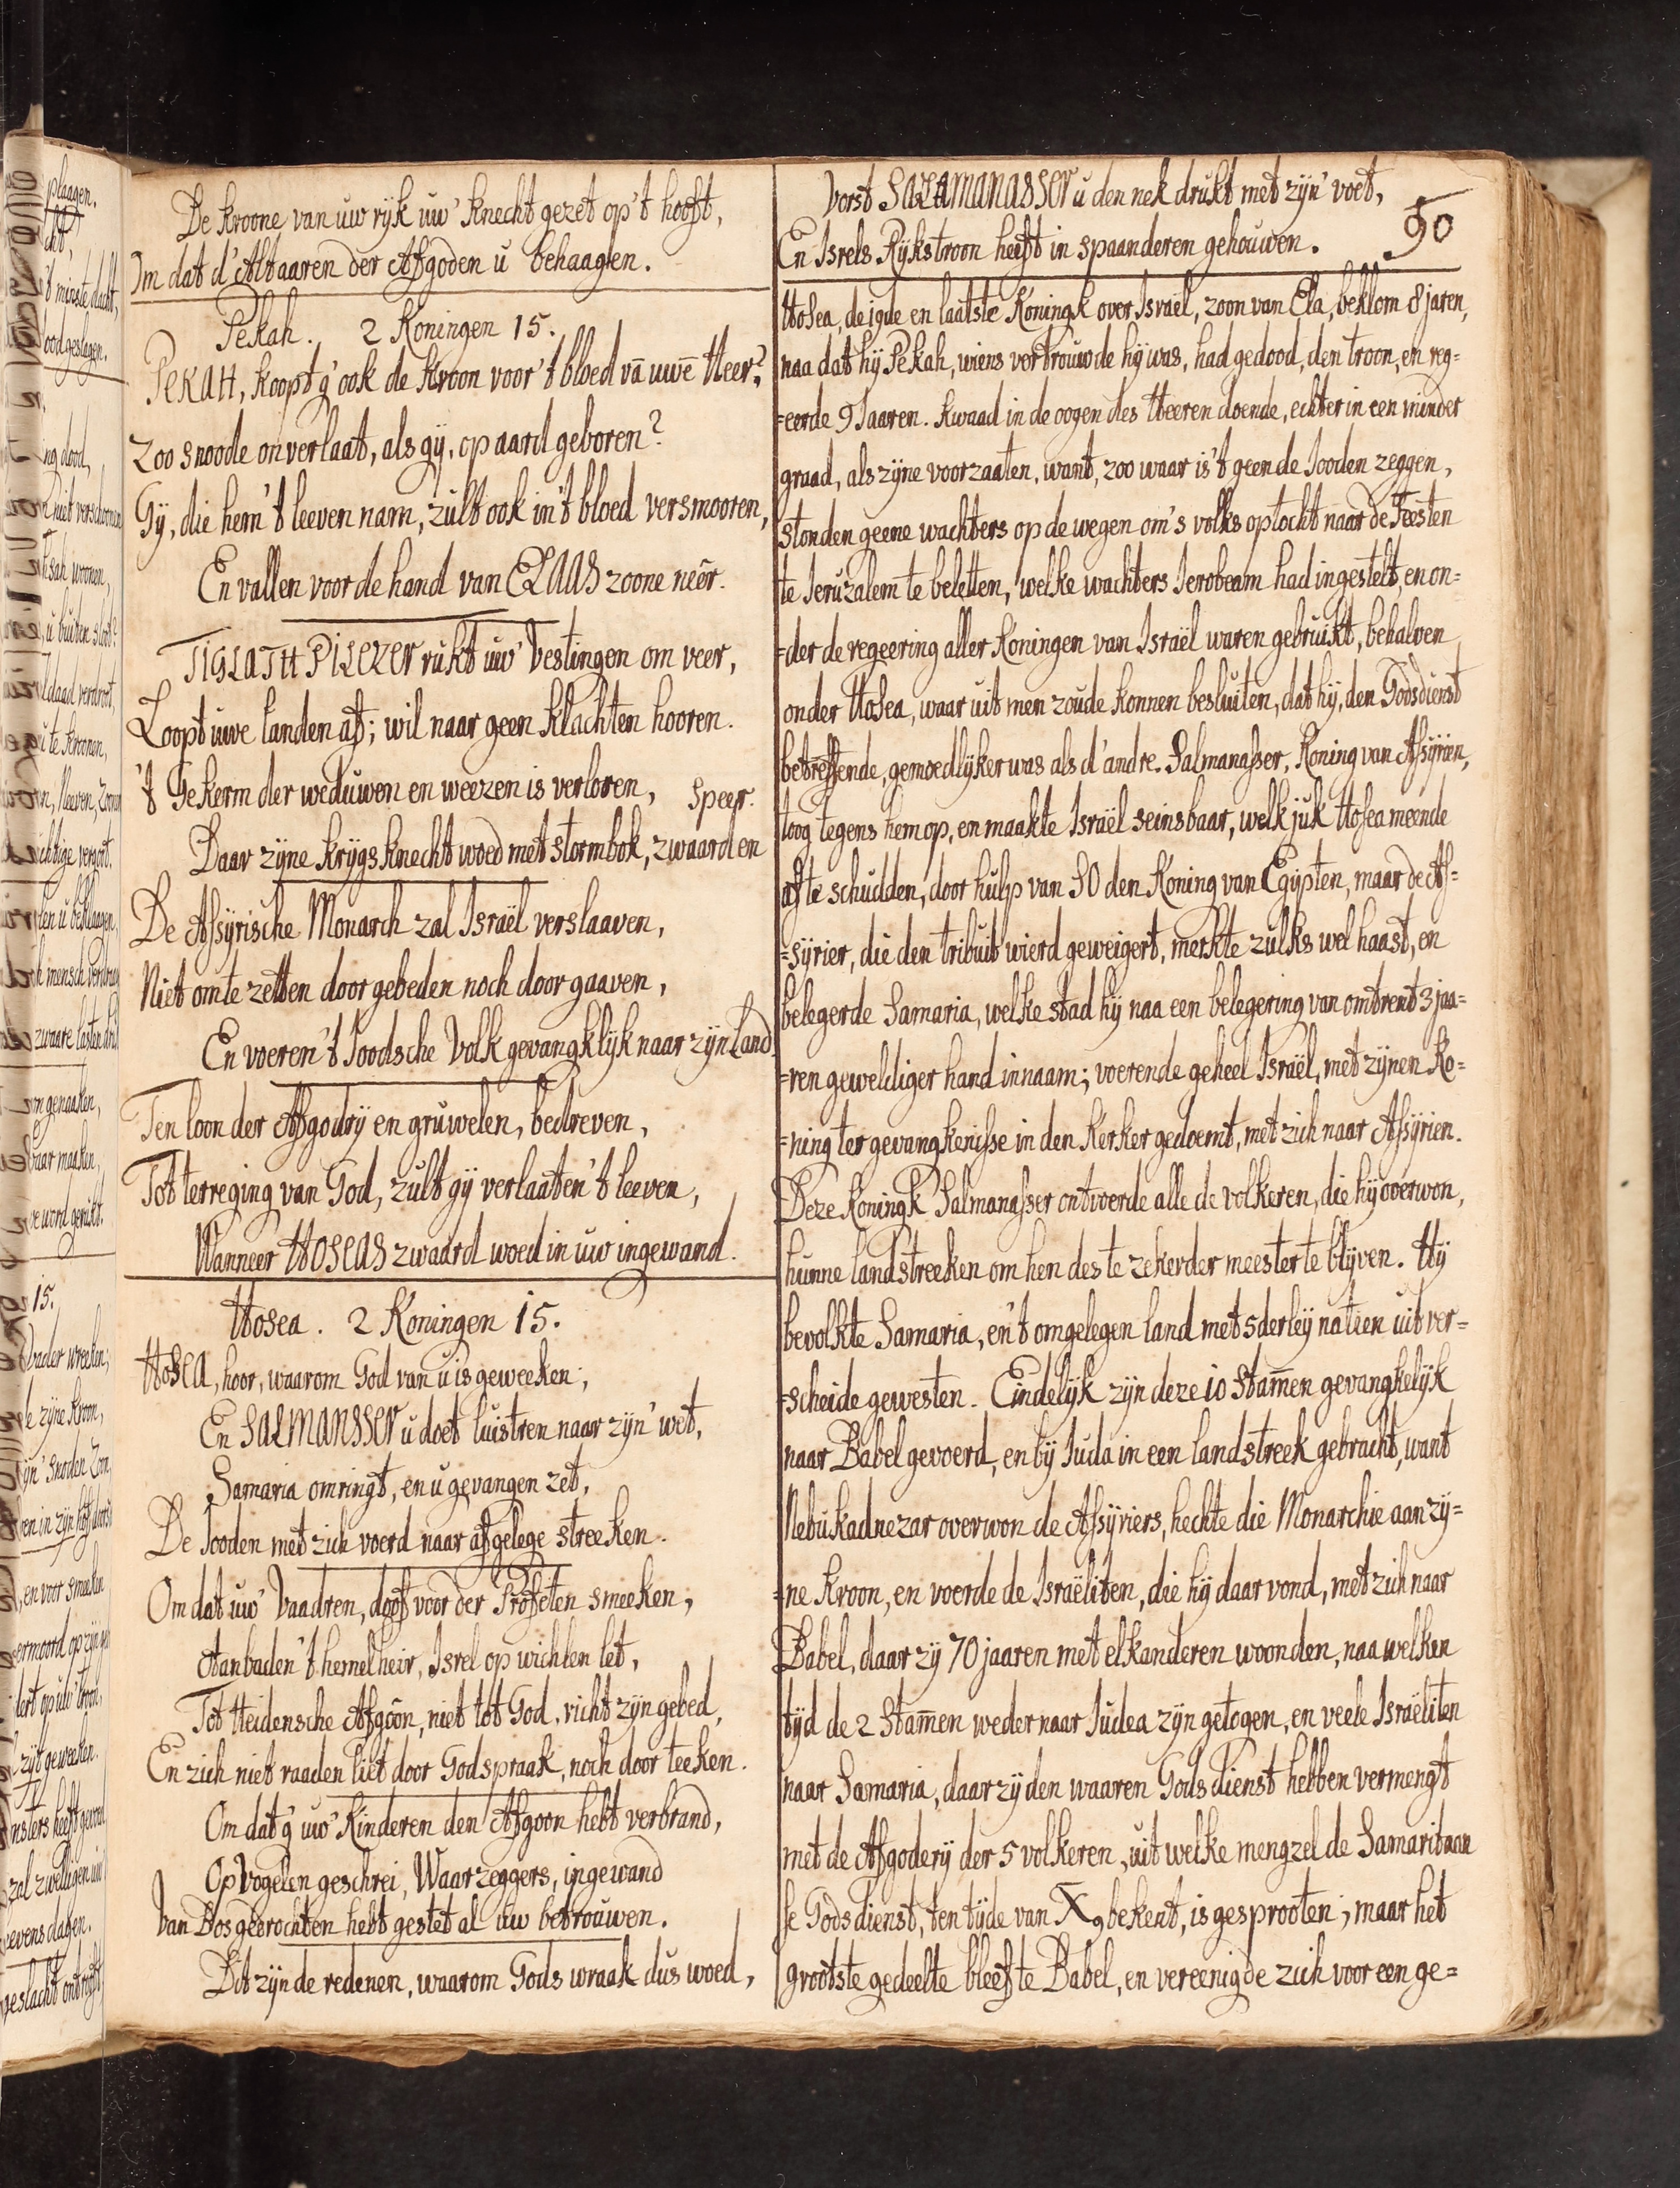 De kroone van uw ryk uw' knecht gezet op 't hooft,
Om dat d'Altaaren der Afgoden u behaagen.
Pekah. 2 Koningen 15.
PEKAH, koopt g'ook de kroon voor 't bloed vā uwē Heer?
Zoo snoode onverlaat, als gÿ, op aard geboren?
Gÿ, die hem 't leeven nam, zult ook in 't bloed versmooren,
En vallen voor de hand van ELAAS zoone neêr.
TIGLATH PILEZER rukt uw' Vestingen om veer,
Loopt uwe landen af; wil naar geen klachten hooren.
't Gekerm der weduwen en weezen is verloren,
speer.
Daar zÿne krÿgsknecht woed met stormbok, zwaard en
De Assÿrische Monarch zal Israël verslaaven,
Niet om te zetten door gebeden noch door gaaven,
En voeren 't Joodsche Volk gevangklÿk naar zÿn Land.
Ten loon der Afgodrÿ en gruwelen, bedreven,
Tot terreging van God, zult gÿ verlaaten 't leeven,
Wanneer HOSEAS zwaard woed in uw ingewand.
Hosea. 2 Koningen 15.
HOSEA, hoor, waarom God van u is geweeken;
En SALMANSSER u doet luistren naar zÿn' wet,
Samaria omringt, en u gevangen zet,
De Jooden met zich voerd naar afgelege streeken.
Om dat uw' Vaadren, doof voor der Profeten smeeken,
Aanbaden 't hemelheir, Isrel op wichlen let,
Tot Heidensche Afgoôn, niet tot God, richt zÿn gebed,
En zich niet raaden liet door Godspraak, noch door teeken.
Om dat g' uw' Kinderen den Afgoon hebt verbrand,
Op Vogelen geschrei, Waarzeggers, ingewand
Van Dos geerochten hebt gestet al uw betrouwen.
Dit zÿn de redenen, waarom Gods wraak dus woed,
Vorst SALAMANASSER u den nek drukt met zÿn' voet,
En Isrels Rÿkstroon heeft in spaanderen gehouwen.
90
Hosea, de 19de en laatste Koningk over Israël, zoon van Ela, beklom 8 jaren,
naa dat hÿ Pekah, wiens vertrouwde hÿ was, had gedood, den troon, en reg=
=eerde 9 Jaaren. Kwaad in de oogen des Heeren doende, echter in een minder
graad, als zÿne voorzaaten, want, zoo waar is 't geen de Jooden zeggen,
stonden geene wachters op de wegen om 's volks optocht naar de Feesten
te Jeruzalem te beletten, welke wachters Jerobeam had ingestelt, en on=
=der de regeering aller Koningen van Israël waren gebruikt, behalven
onder Hosea, waar uit men zoude konnen besluiten, dat hÿ, den Godsdienst
betreffende, gemoedlÿker was als d'andre. Salmanasser, Koning van Assÿrien,
toog tegens hem op, en maakte Israël seinsbaar, welk juk Hosea meende
af te schudden, door hulp van SO den Koning van Egÿpten, maar de As=
=sÿrier, die den tribuit wierd geweigert, merkte zulks wel haast, en
belegerde Samaria, welke stad hÿ naa een belegering van omtrent 3 jaa=
=ren geweldiger hand innaam; voerende geheel Israël, met zÿnen Ko=
=ning ter gevangkenisse in den Kerker gedoemt, met zich naar Assÿrien.
Deze Koningk Salmanasser ontvoerde alle de volkeren, die hÿ overwon,
hunne landstreeken om hen des te zekerder meester te blÿven. Hÿ
bevolkte Samaria, en 't omgelegen land met 5derleÿ natien uit ver=
=scheide gewesten. Eindelÿk zÿn deze 10 Stam̄en gevangkelÿk
naar Babel gevoerd, en bÿ Juda in een landstreek gebracht, want
Nebukadnezar overwon de Assÿriers, hechte die Monarchie aan zÿ=
=ne kroon, en voerde de Israëliten, die hÿ daar vond, met zich naar
Babel, daar zÿ 70 jaaren met elkanderen woonden, naa welken
tÿd de 2 Stam̄en weder naar Judea zÿn getogen, en veele Israëliten
naar Samaria, daar zÿ den waaren Godsdienst hebben vermengt
met de Afgoderÿ der 5 volkeren, uit welke mengzel de Samaritaan
se Godsdienst, ten tÿde van X9 bekent, is gesprooten; maar het
grootste gedeelte bleef te Babel, en vereenigde zich voor een ge=